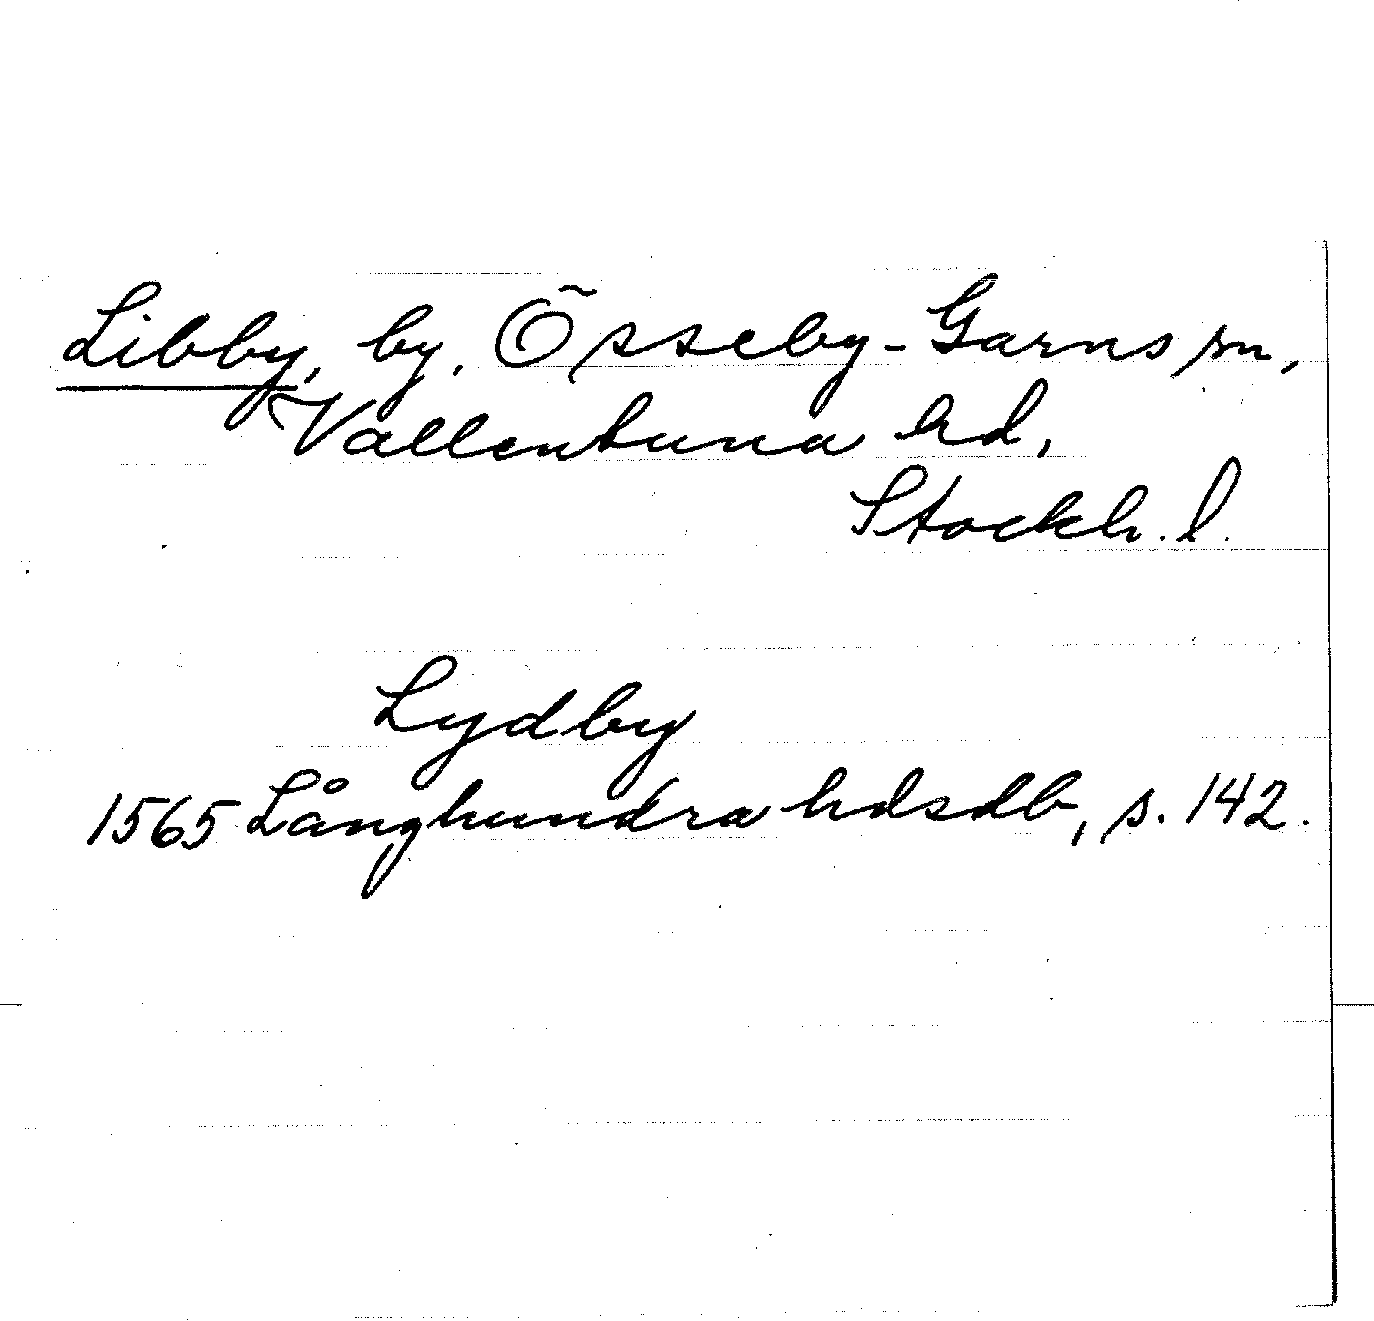 Libby, by, Össeby-Garns sn,
Vallentuna hd,
Stockh. l.
Lydby
1565 Långhundra hdsdb, s. 142.